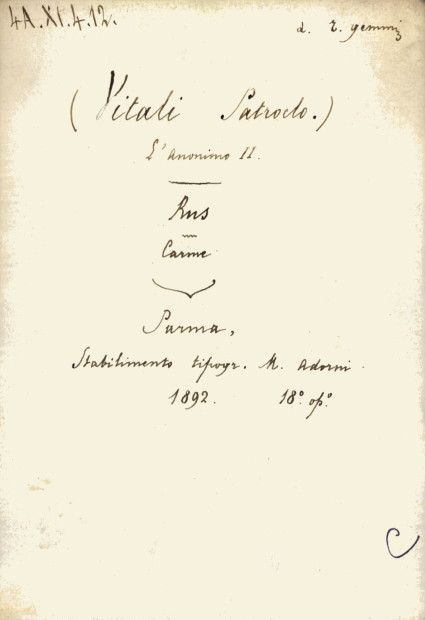 4A.XI.4.12.
d. E. gemmi
(Vitali Patroclo.)
L'anonimo II.
Rus
Carme
Parma,
Stabilimento tipogr. M. Adorni.
1892. 18.° op.°
C